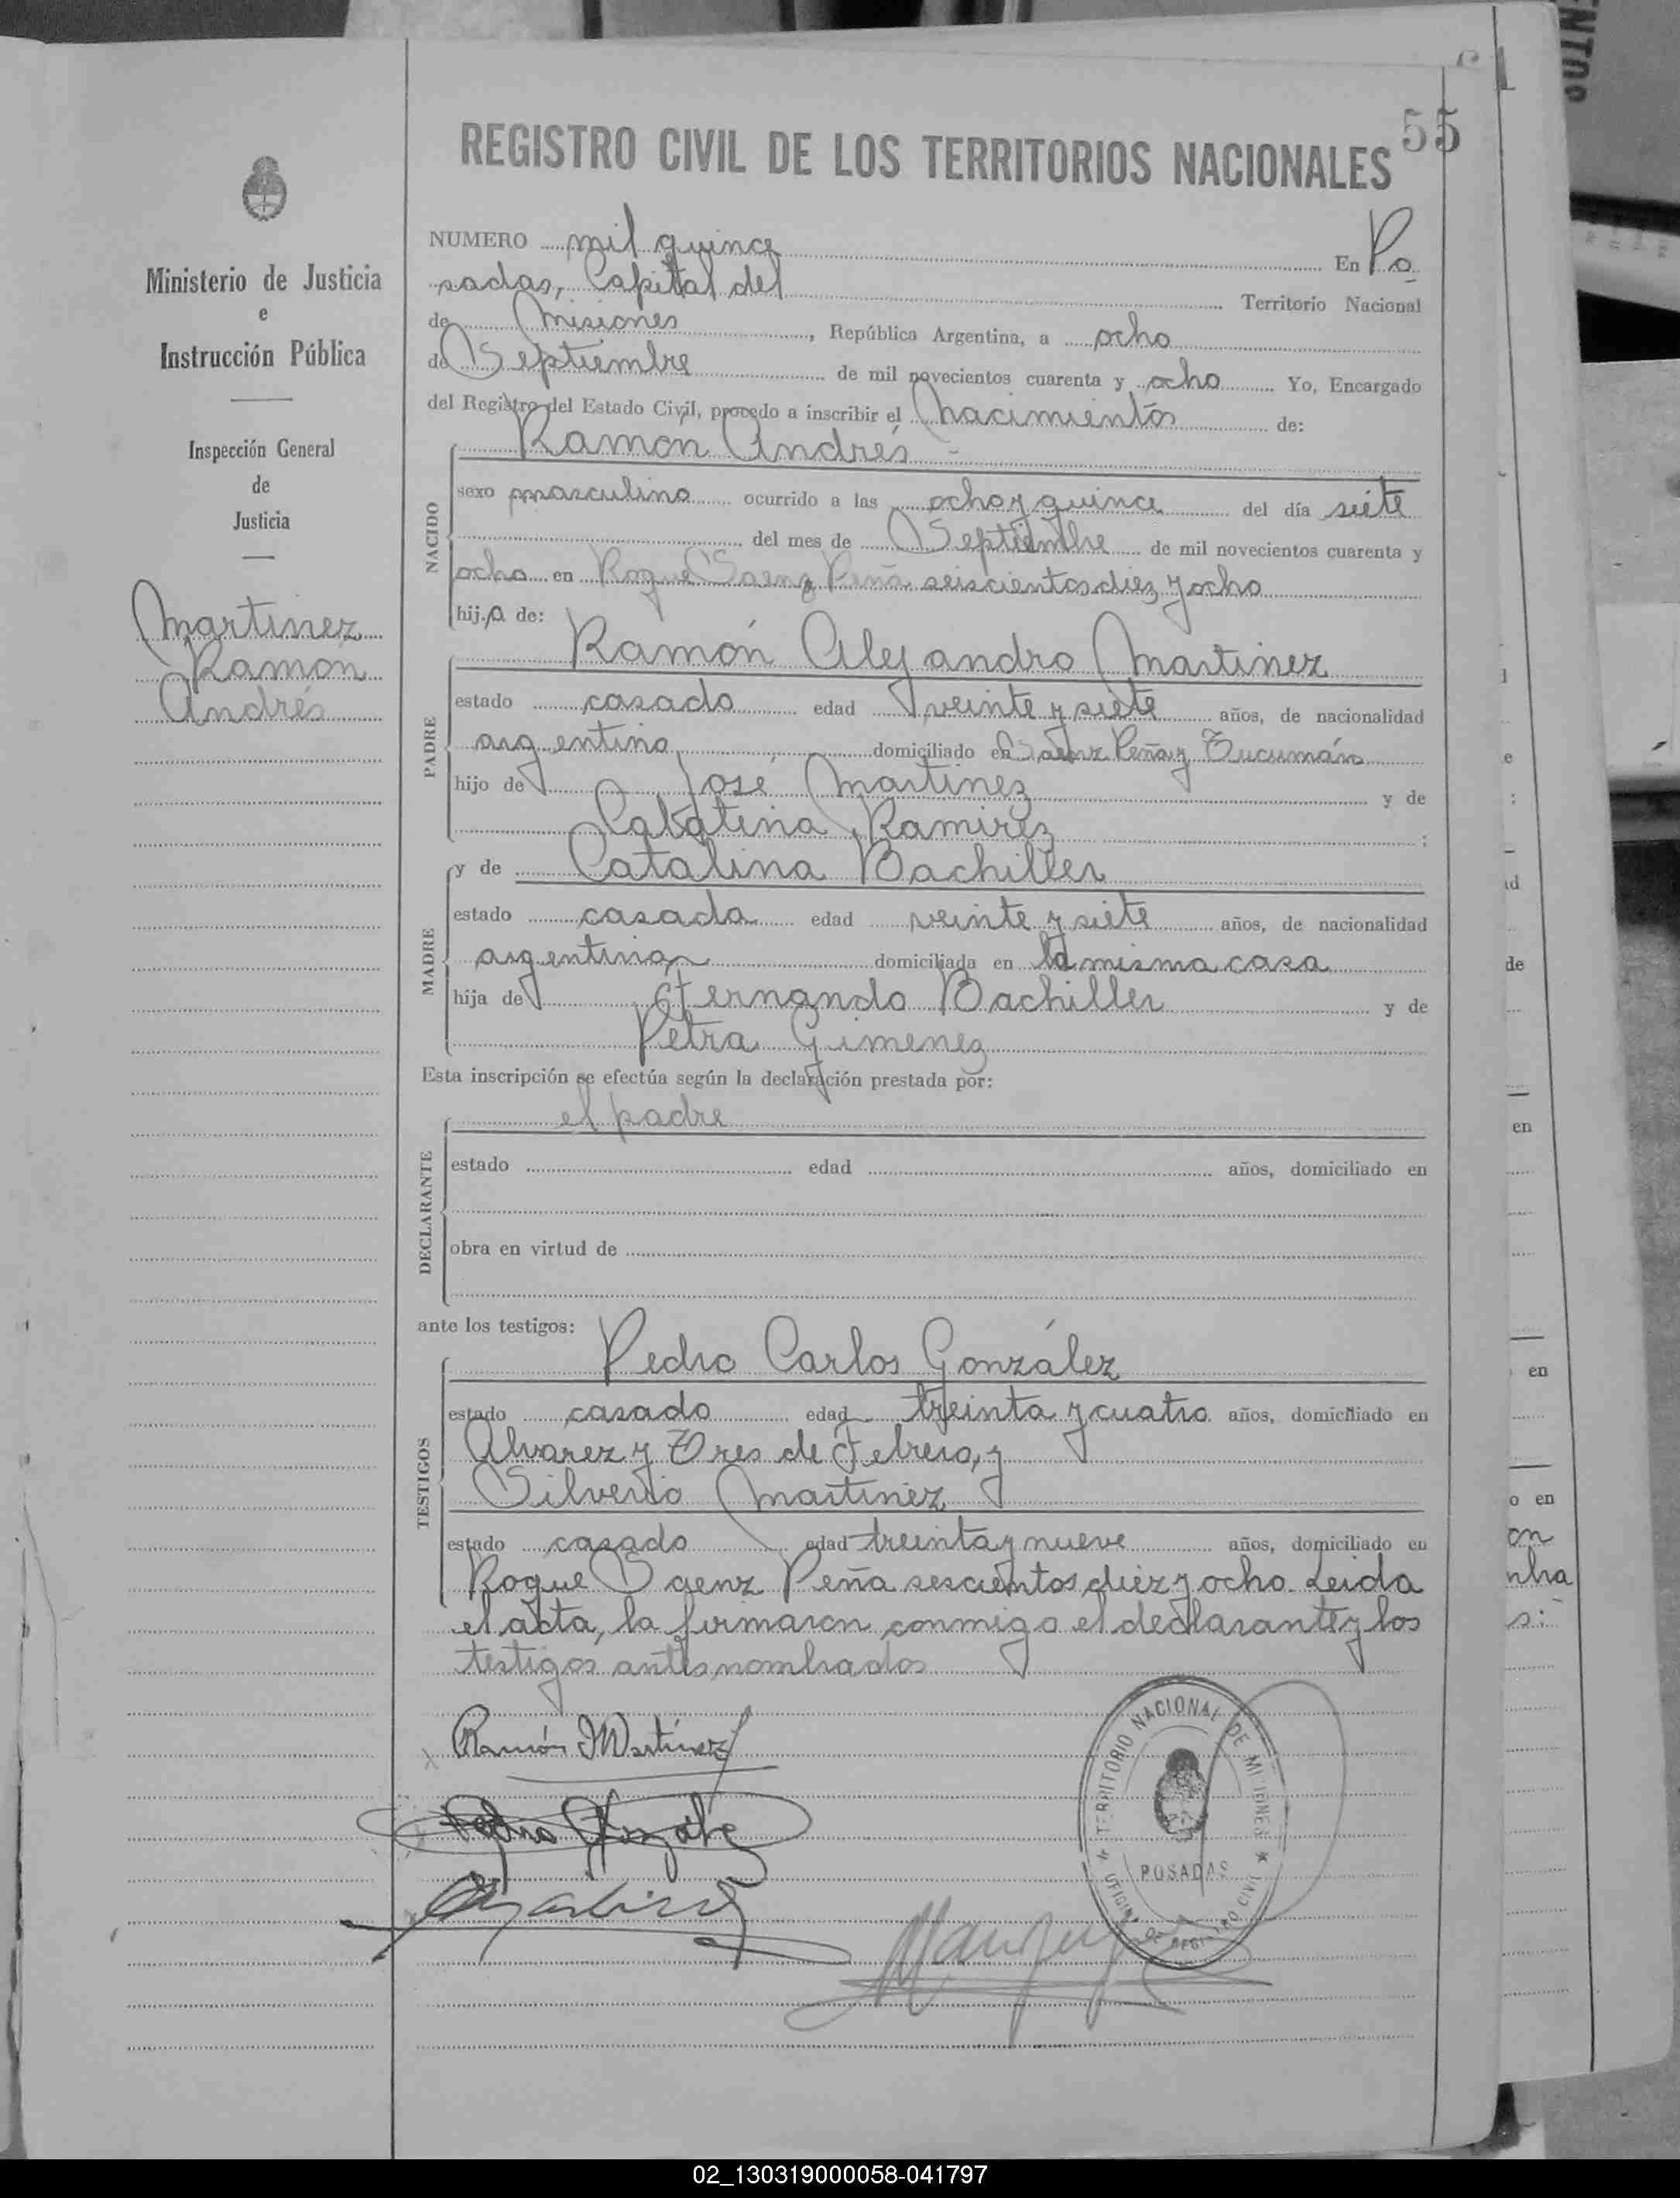 55
REGISTRO CIVIL DE LOS TERRITORIOS NACIONALES
Ministerio de Justicia
e
Instrucción Pública
Inspección General
de
Justicia
Martinez
Ramón
Andrés
NUMERO mil quince En Po
sadas, Capital del Territorio Nacional
de Misiones, República Argentina, a ocho
de Septiembre de mil novecientos cuarenta y ocho Yo, Encargado
del Registro del Estado Civil, procedo a inscribir el nacimiento de:
Ramón Andrés
NACIDO
sexo masculino ocurrido a las ocho y quince del día siete
del mes de Septiembre de mil novecientos cuarenta y
ocho en Roque Saenz Peña seiscientos diez y ocho
hijo de:
PADRE
Ramón Alejandro Martinez
estado casado edad veinte y siete años, de nacionalidad
argentina domiciliado en Saenz Peña y Tucumán
hijo de José Martinez y de
Ramirez ;
MADRE
y de Catalina Bachiller
estado casada edad veinte y siete años, de nacionalidad
argentina domiciliada en la misma casa
hija de Hernando Bachiller y de
Petra Gimenez
Esta inscripción se efectúa según la declaración prestada por:
DECLARANTE
el padre
estado edad años, domiciliado en
obra en virtud de
ante los testigos:
TESTIGOS
Pedro Carlos González
estado casado edad treinta y cuatro años, domiciliado en
Alvarez y Tres de Febrero, y
Silverio Martinez
estado casado edad treinta y nueve años, domiciliado en
Roque Saenz Peña sescientos diez y ocho. Leida
el acta, la firmaron conmigo el declarante y los
testigos antes nombrados
Ramón Martínez
Pedro González
TERRITORIO NACIONAL DE MISIONES
POSADAS
OFICINA DE REGISTRO CIVIL
02_130319000058-041797